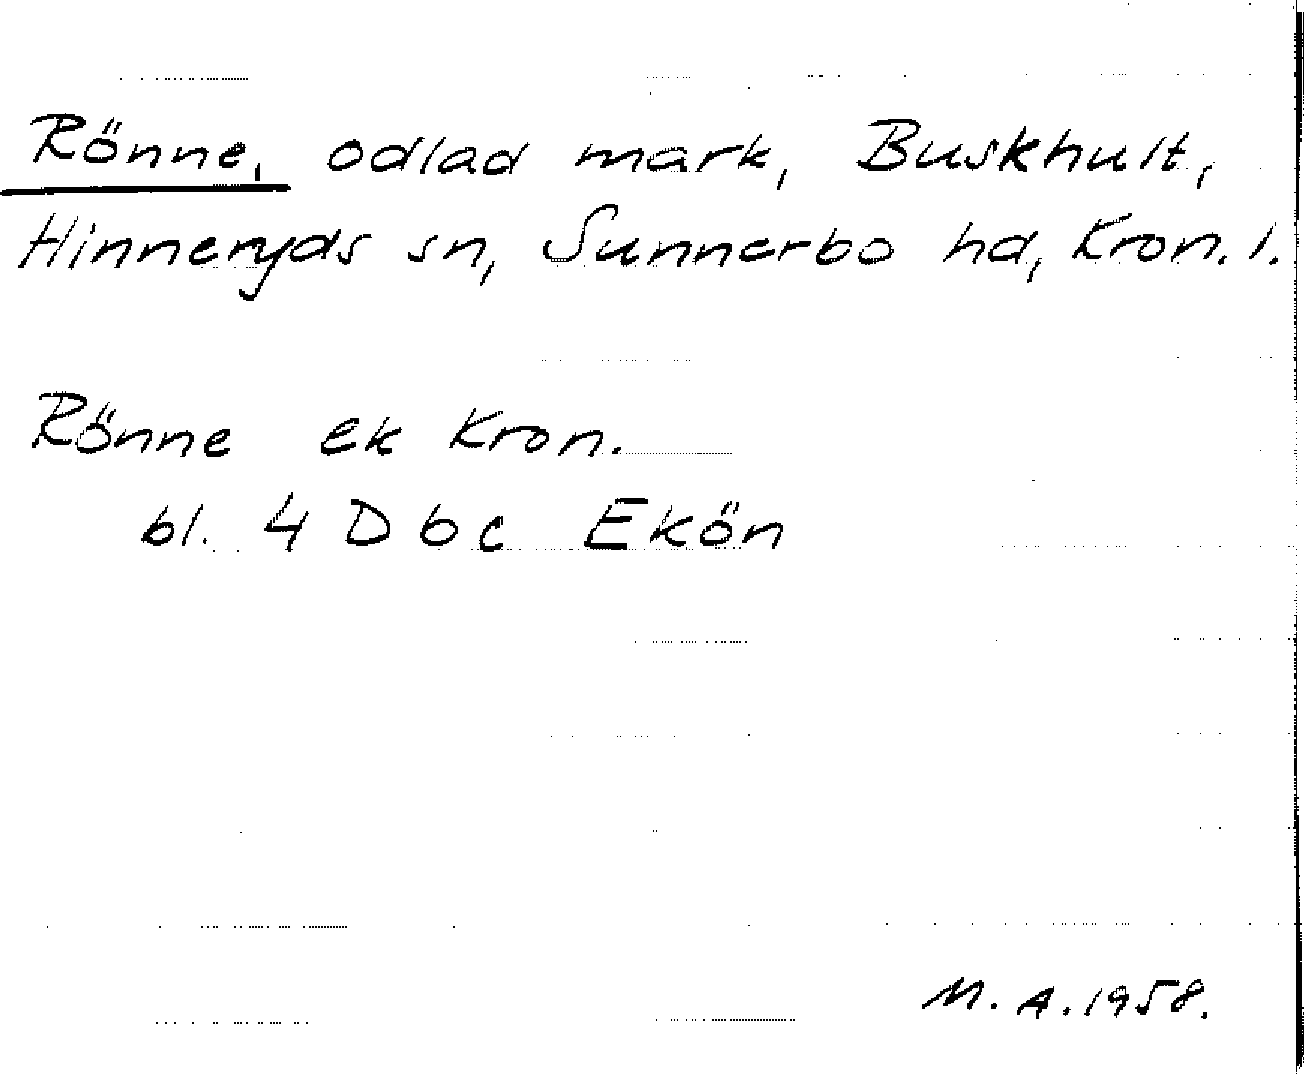 Rönne, odlad mark, Buskhult,
Hinneryds sn, Sunnerbo hd, Kron. l.
Rönne ek Kron.
bl. 4 D b c Ekön
M. A. 1958.